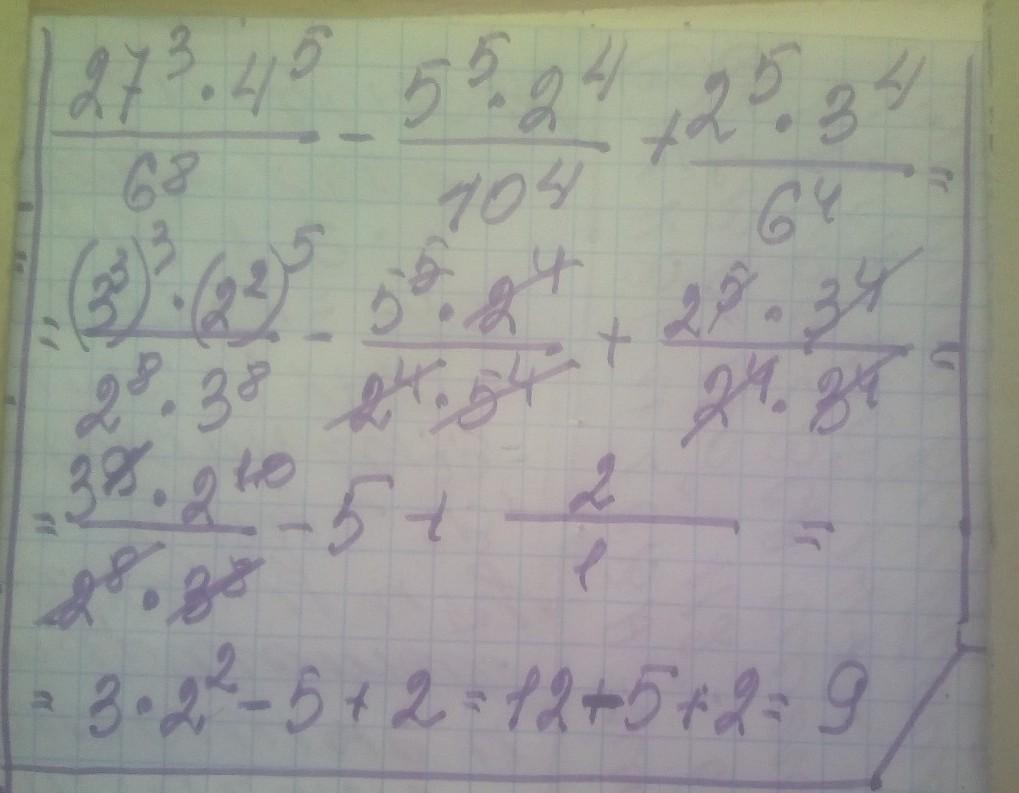 27³ · 4⁵ / 6⁸ − 5⁵ · 2⁴ / 10⁴ + 2⁵ · 3⁴ / 6⁴ =
= (3³)³ · (2²)⁵ / 2⁸ · 3⁸ − 5⁵ · 2⁴ / 2⁴ · 5⁴ + 2⁵ · 3⁴ / 2⁴ · 3⁴ =
= 3⁹ · 2¹⁰ / 2⁸ · 3⁸ − 5 + 2 / 1 =
= 3 · 2² − 5 + 2 = 12 − 5 + 2 = 9